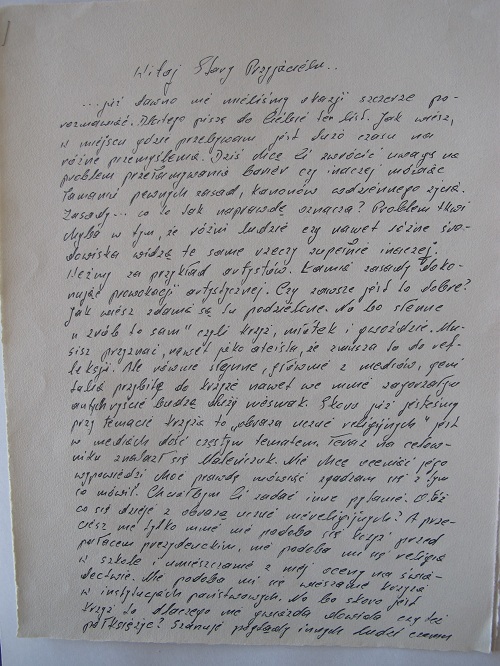 Witaj Stary Przyjacielu..
...już dawno nie mieliśmy okazji szczerze po-
rozmawiać. Dlatego piszę do Ciebie ten list. Jak wiesz,
w miejscu gdzie przebywam jest dużo czasu na
różne przemyślenia. Dziś chcę Ci zwrócić uwagę na
problem przełamywania barier czy inaczej mówiąc
łamania pewnych zasad, kanonów codziennego życia.
Zasady... co to tak naprawdę oznacza? Problem tkwi
chyba w tym, że różni ludzie czy nawet różne śro-
dowiska widzą te same rzeczy zupełnie inaczej.
Weźmy za przykład artystów. Łamią zasady doko-
nując prowokacji artystycznej. Czy zawsze jest to dobre?
Jak wiesz zdania są tu podzielone. No bo słynne
"zrób to sam" czyli krzyż, młotek i gwoździe. Mu-
sisz przyznać, nawet jako ateista, że zmusza to do ref-
leksji. Ale równie słynne, głównie z mediów, geni
talia przybite do krzyża nawet we mnie zagorzałym
antychryście budzą duży niesmak. Skoro już jesteśmy
przy temacie krzyża to „obraza uczuć religijnych" jest
w mediach dość częstym tematem. Teraz na celow-
niku znalazł się Maleńczuk. Nie chcę oceniać jego
wypowiedzi choć prawdę mówiąc zgadzam się z tym
co mówił. Chciałbym Ci zadać inne pytanie. Otóż
co się dzieje z obrazą uczuć niereligijnych? A prze-
cież nie tylko mnie nie podoba się krzyż przed
pałacem prezydenckim, nie podoba mi się religia
w szkole i umieszczanie z niej oceny na świa-
dectwie. Nie podoba mi się wieszanie krzyża
w instytucjach państwowych. No bo skoro jest
krzyż to dlaczego nie gwiazda dawida czy też
półksiężyc? Szanuję poglądy innych ludzi czemu